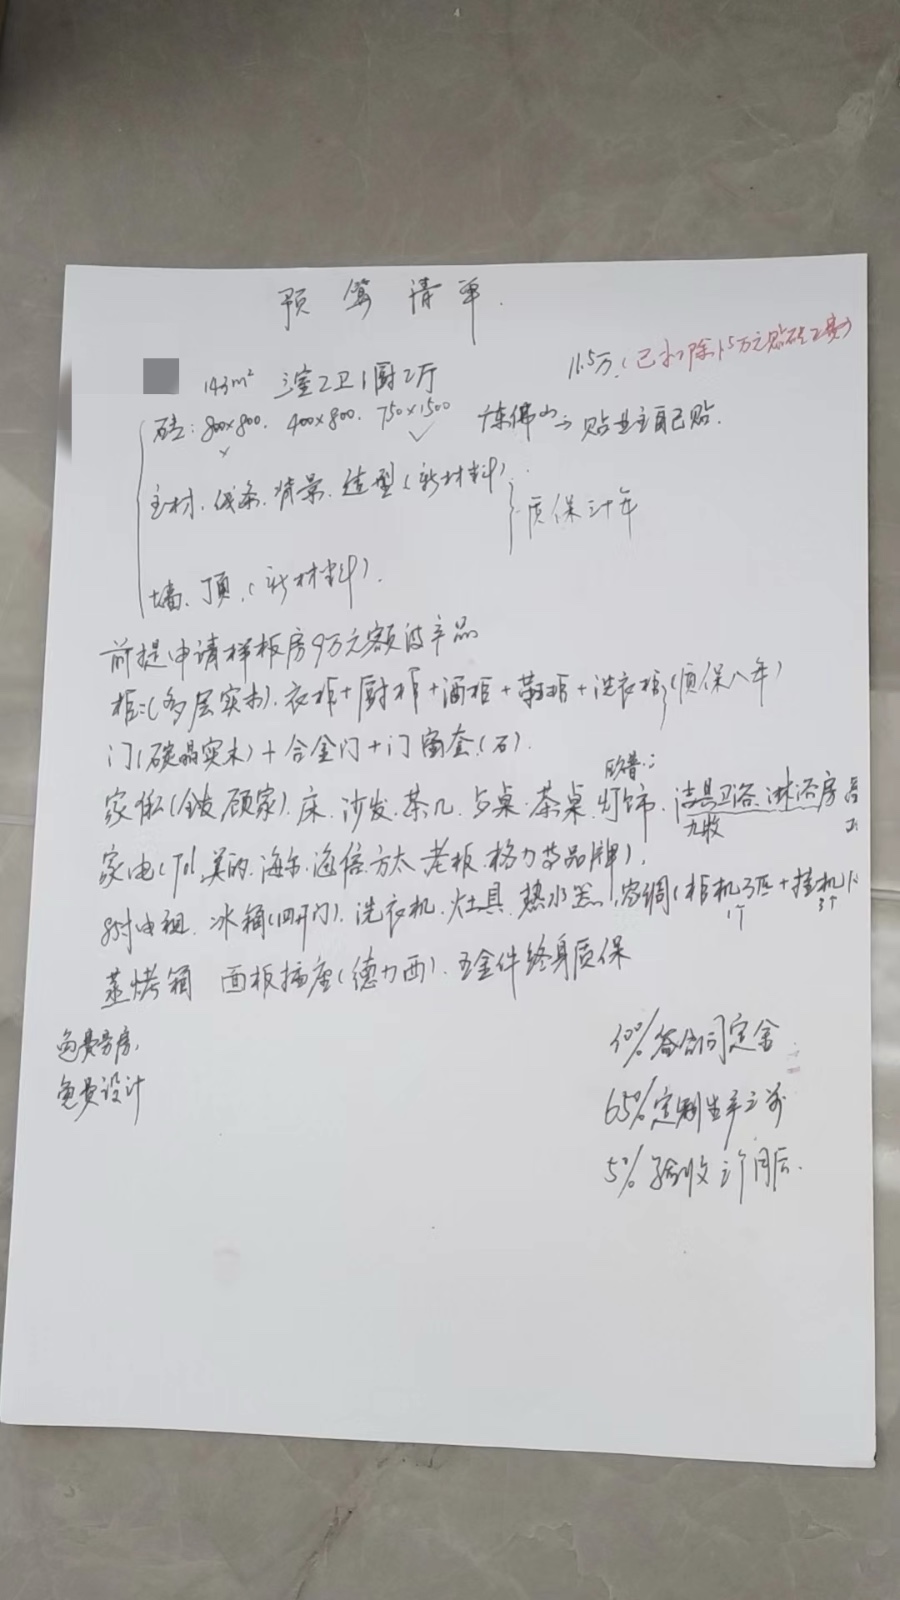 预算清单.
143m² 三室2卫1厨2厅
11.5万.(已扣除1.5万元贴砖工费)
砖: 800×800. 400×800. 750×1500 贴业主自己贴.
× ✓
主材. 线条. 背景. 造型(新材料).
质保三十年
墙、顶.(新材料).
前提申请样板房9万元额的产品
柜:(多层实木). 衣柜+厨柜+酒柜+鞋柜+洗衣柜(质保八年)
门(碳晶实木)+合金门+门窗套.(石).
家俬(顾家). 床. 沙发. 茶几. 桌. 茶桌. 灯饰. 洁具卫浴. 淋浴房
九牧
家电(Tcl. 美的. 海尔. 海信. 方太. 老板. 格力等品牌).
85寸电视. 冰箱(四开门). 洗衣机. 灶具. 热水器. 空调(柜机3匹+挂机
1个 3个
蒸烤箱 面板插座(德力西). 五金件终身质保
免费设计
签合同定金
65%定制生产之前
5%验收三个月后.